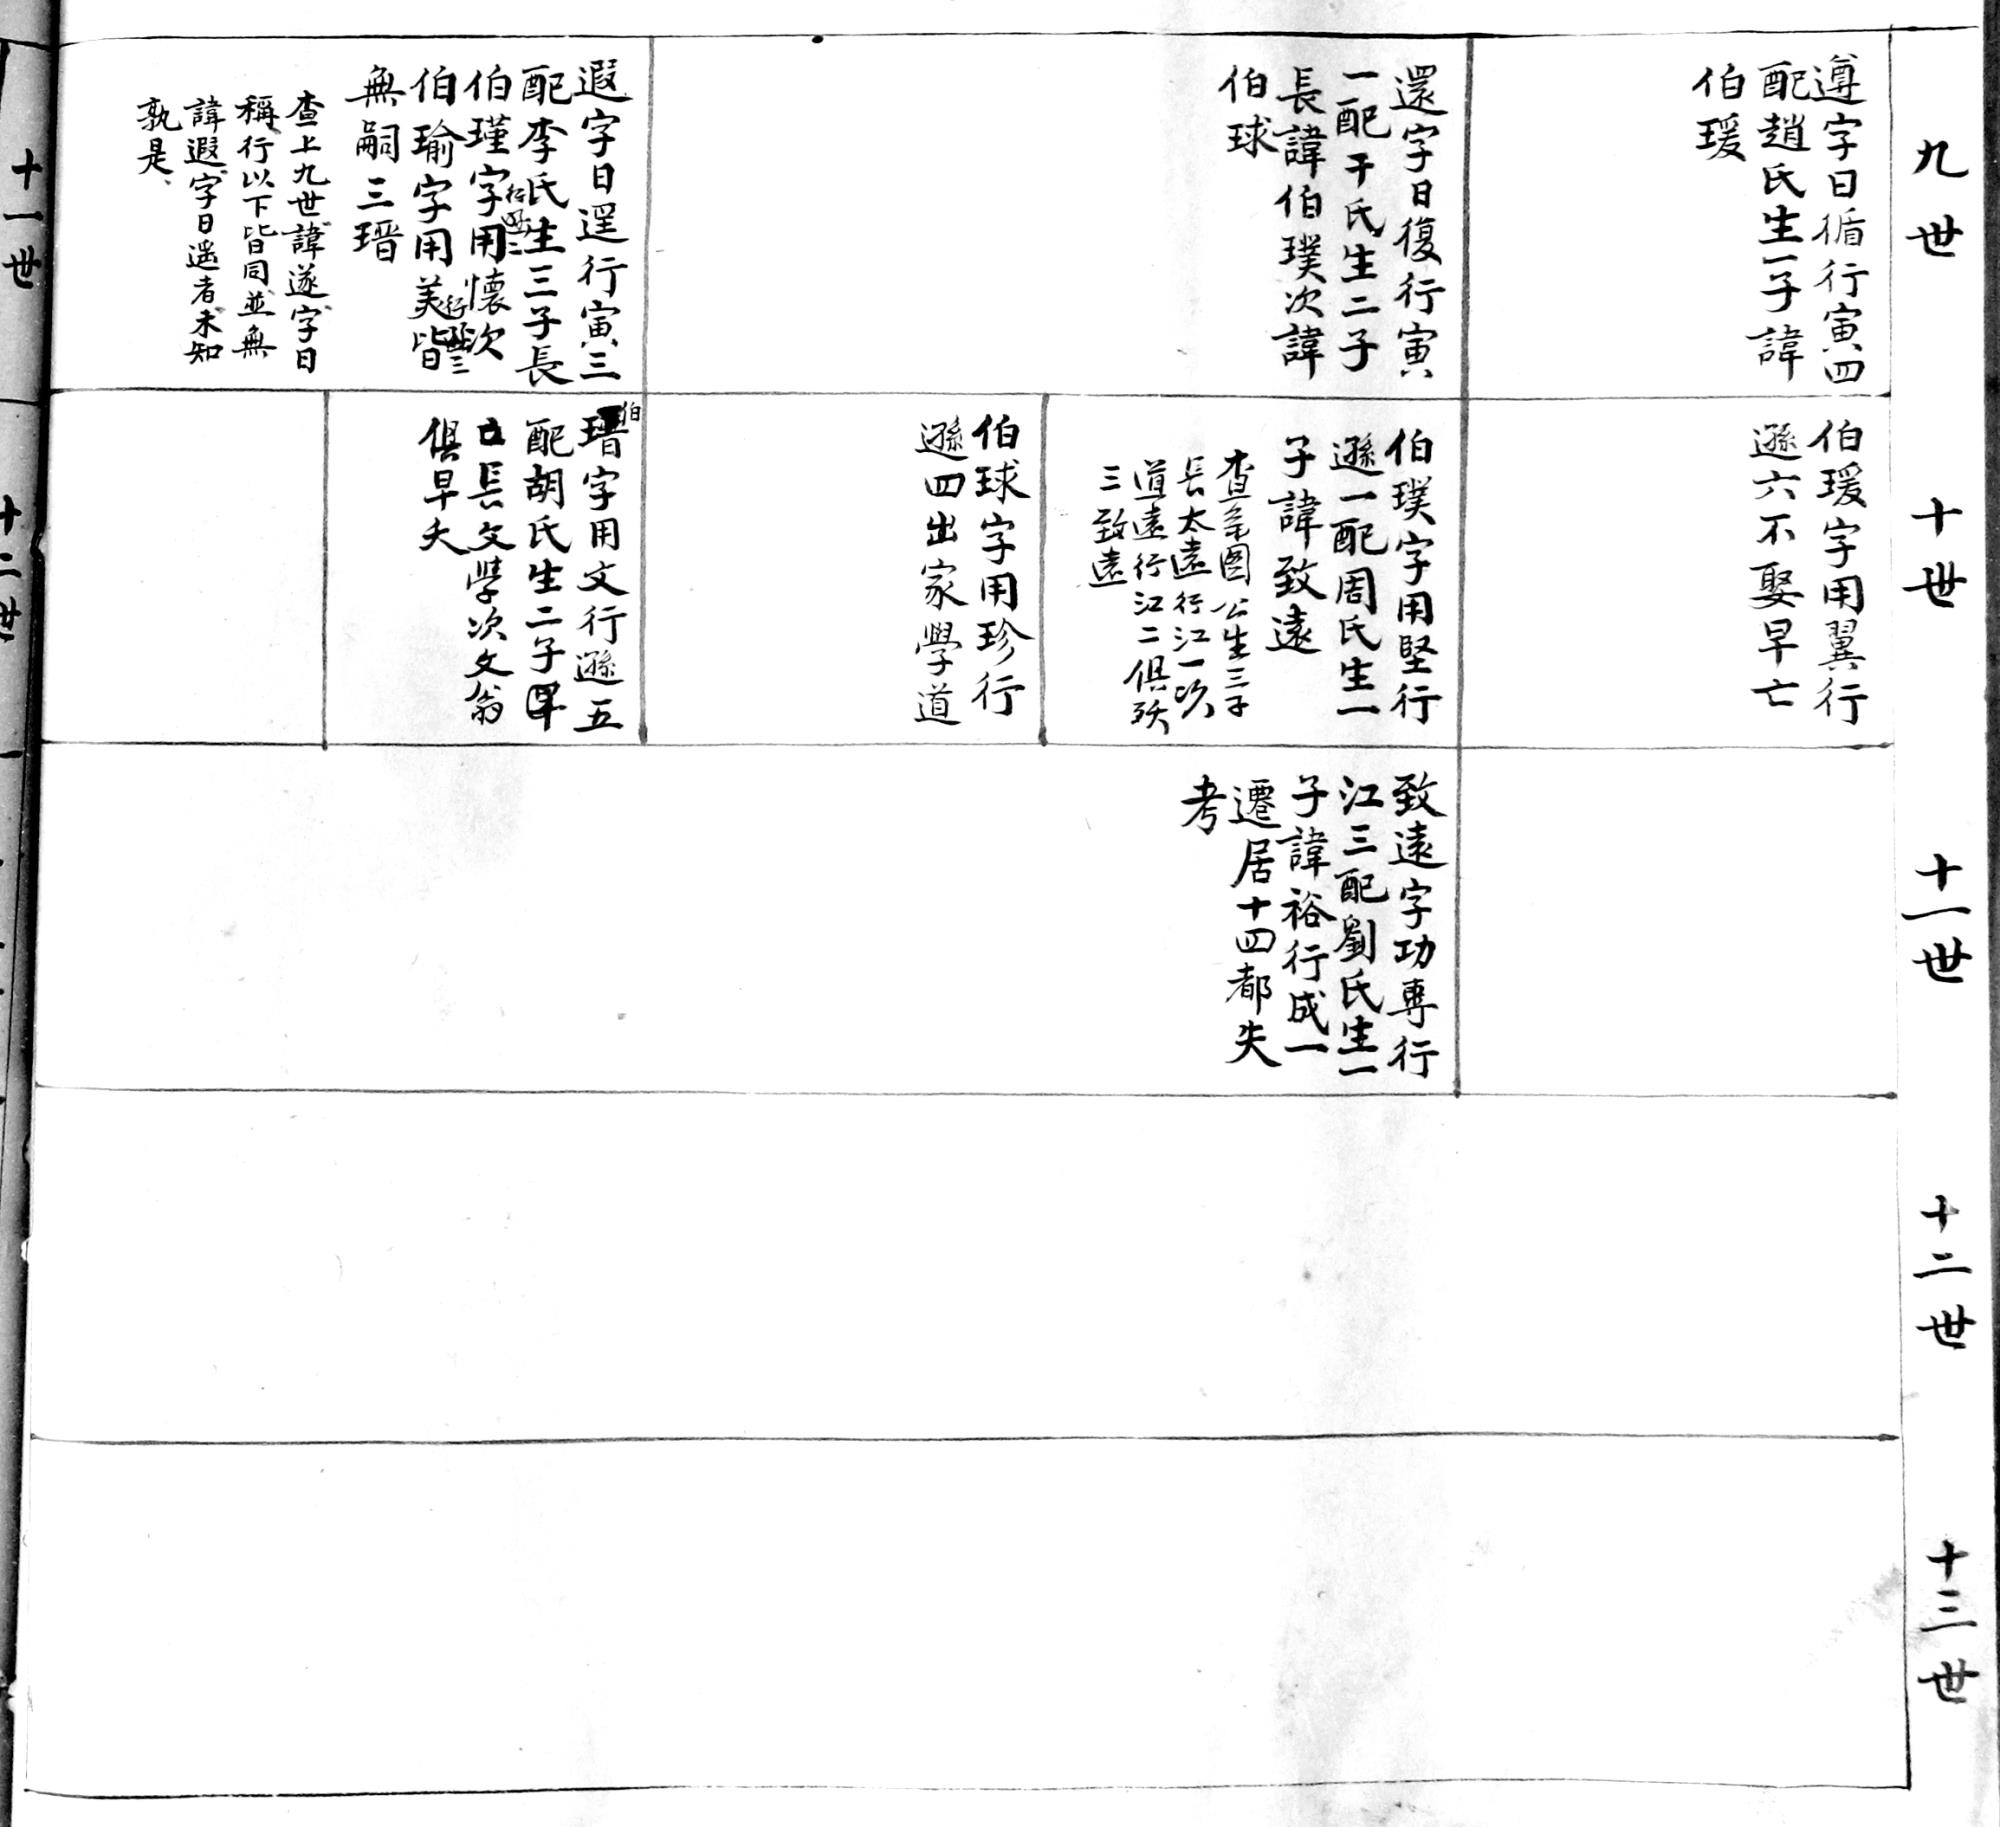 九世
遵字日循行寅四
配趙氏生一子諱
伯瑗
還字日復行寅
一配干氏生二子
長諱伯璞次諱
伯球
遐字日逞行寅三
配李氏生三子長
伯瑾字用懷次
伯瑜字用美皆
無嗣三瑨
查上九世諱遂字日
稱行以下皆同並無
諱遐字日遥者未知
孰是
十世
伯瑗字用翼行
遜六不娶早亡
伯璞字用堅行
遜一配周氏生一
子諱致遠
查 圖公生三子
長太遠行江一次
道遠行江二俱殀
三致遠
伯球字用珍行
遜四出家學道
伯
瑨字用文行遜五
配胡氏生二子
長文學次文翁
俱早夭
十一世
致遠字功專行
江三配劉氏生一
子諱裕行成一
遷居十四都失
考
十二世
十三世
十一世
十二世